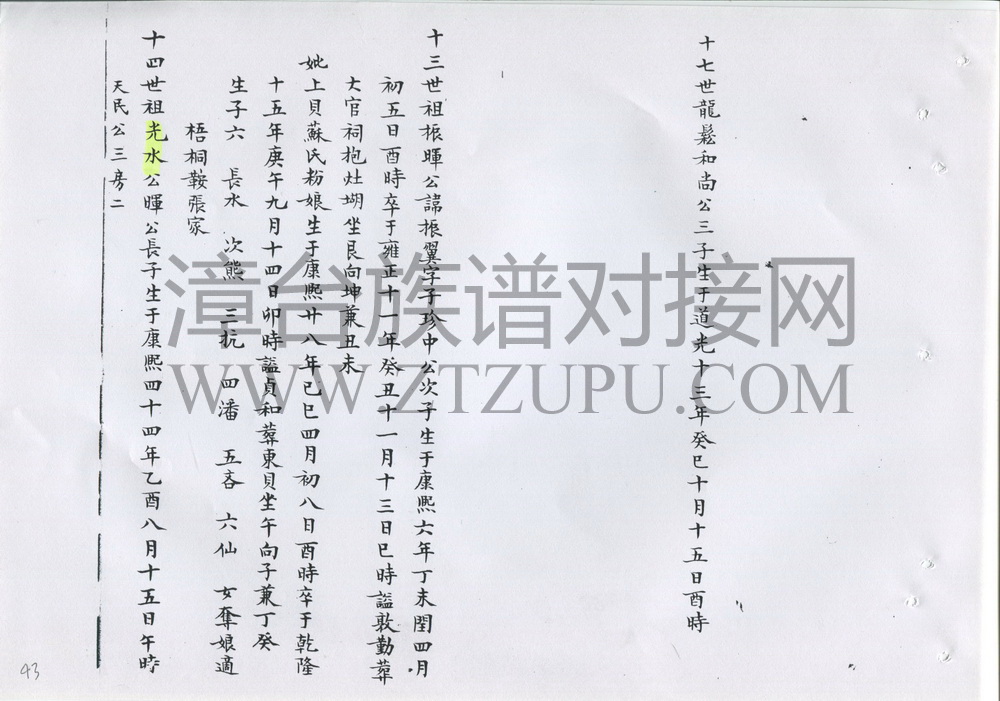 十七世龍鬆和尚公三子生于道光十三年癸巳十月十五日酉時
十三世祖振暉公諱振翼字子珍中公次子生于康熙六年丁未閏四月
初五日酉時卒于雍正十一年癸丑十一月十三日巳時謚敦勤葬
大官祠抱灶坳坐艮向坤兼丑未
妣上貝蘇氏粉娘生于康熙廿八年己巳四月初八日酉時卒于乾隆
十五年庚午九月十四日卯時謚貞和葬東貝坐午向子兼丁癸
生子六 長水 次熊 三抗 四潘 五吝 六仙 女奪娘適
梧桐鞍張家
十四世祖光水公暉公長子生于康熙四十四年乙酉八月十五日午時
天民公三房二
43
漳台族谱对接网
WWW.ZTZUPU.COM